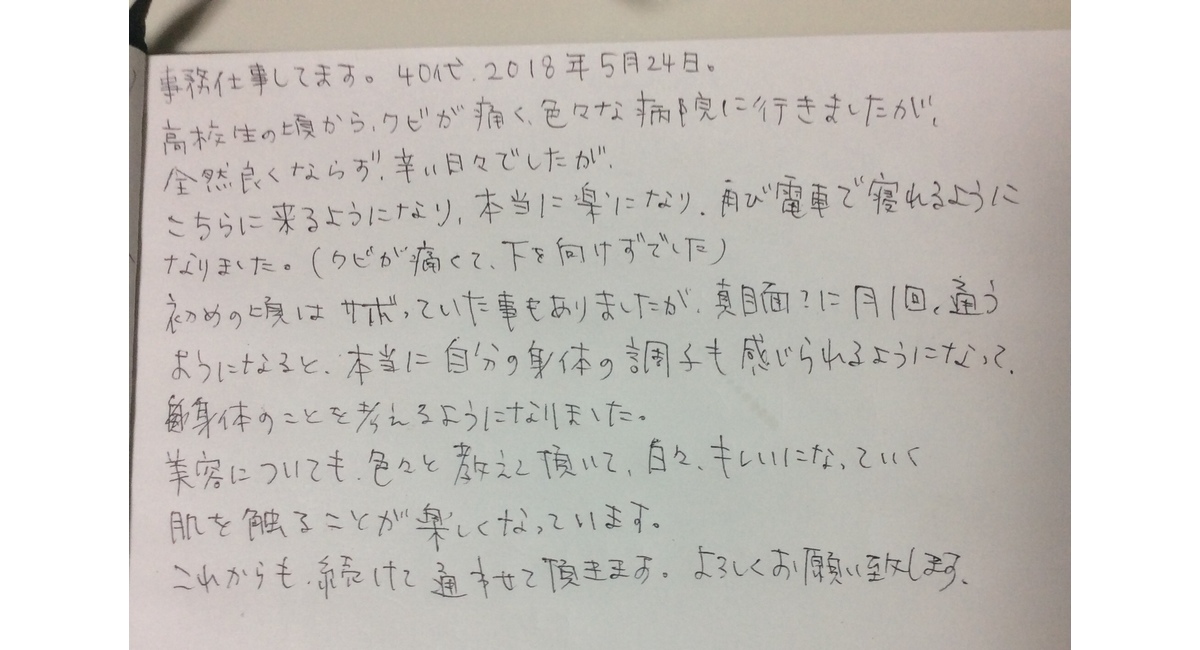 事務仕事してます。40代、2018年5月24日。
高校生の頃から、クビが痛く、色々な病院に行きましたが、
全然良くならず、辛い日々でしたが、
こちらに来るようになり、本当に楽になり、再び電車で寝れるように
なりました。(クビが痛くて、下を向けずでした)
初めの頃はサボっていた事もありましたが、真目面?に月1回、通う
ようになると、本当に自分の身体の調子も感じられるようになって、
身体のことを考えるようになりました。
美容についても、色々と教えて頂いて、日々、キレイになっていく
肌を触ることが楽しくなっています。
これからも、続けて通わせて頂きます。よろしくお願い致します、